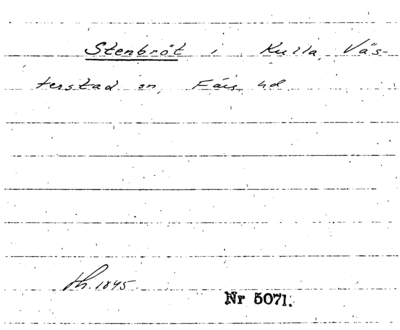 Stenbrot i Kulla, Väs-
terstad sn, Färs hd
th. 1845
Nr 5071.